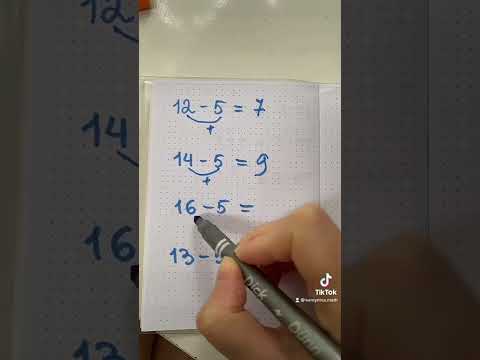 12 - 5 = 7
+
14 - 5 = 9
+
16 - 5 =
13 -
TikTok